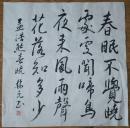 春眠不覺曉
處處聞啼鳥
夜來風雨聲
花落知多少
孟浩然春曉